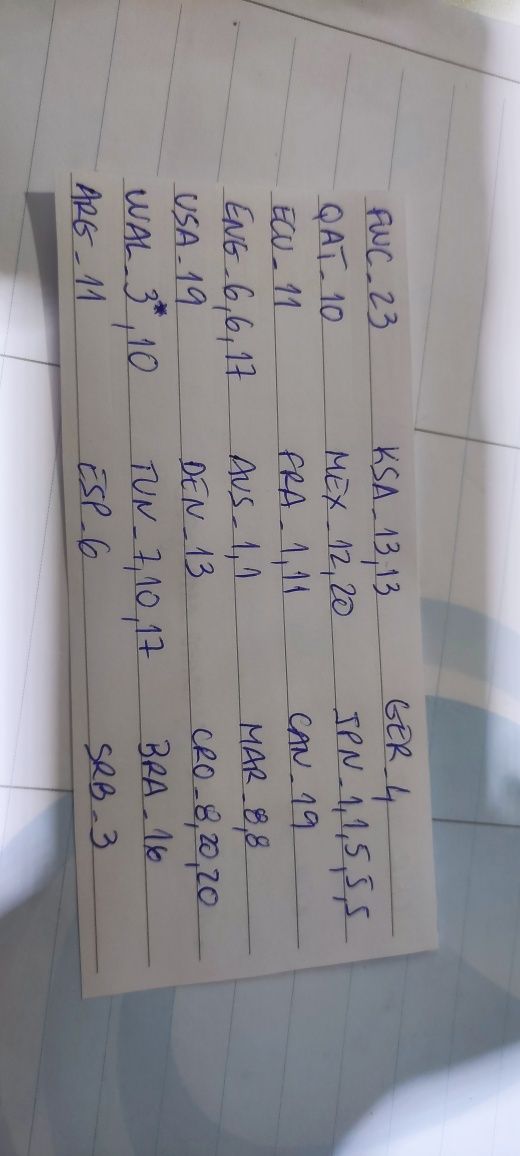 FWC_23 KSA_13,13 GER_4
QAT_10 MEX_12,20 JPN_1,1,5,5,5
ECU_11 FRA_1,11 CAN_19
ENG_6,6,17 AUS_1,1 MAR_8,8
USA_19 DEN_13 CRO_8,20,20
WAL_3*,10 TUN_7,10,17 BRA_16
ARG_11 ESP_6 SRB_3